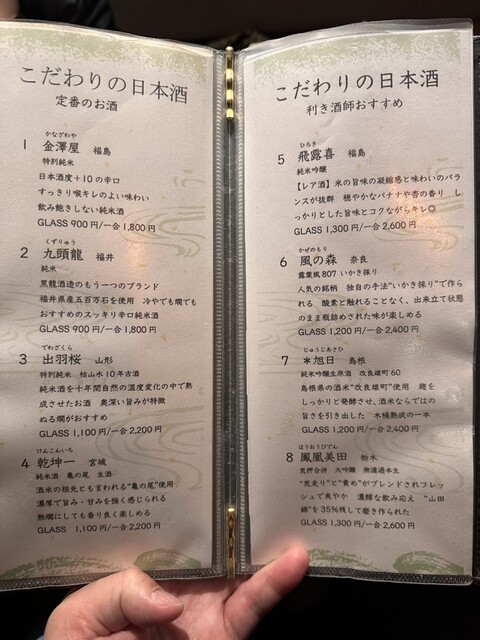 こだわりの日本酒
定番のお酒
かなざわや
1 金澤屋 福島
特別純米
日本酒度+10の辛口
すっきり喉キレのよい味わい
飲み飽きしない純米酒
GLASS 900円/一合 1,800円
くずりゅう
2 九頭龍 福井
純米
黒龍酒造のもう一つのブランド
福井県産五百万石を使用 冷やでも燗でも
おすすめのスッキリ辛口純米酒
GLASS 900円/一合 1,800円
でわざくら
3 出羽桜 山形
特別純米 枯山水10年古酒
純米酒を十年間自然の温度変化の中で熟
成させたお酒 奥深い旨みが特徴
ぬる燗がおすすめ
GLASS 1,100円/一合 2,200円
けんこんいち
4 乾坤一 宮城
純米酒 亀の尾 生酒
酒米の祖先とも言われる"亀の尾"使用
濃厚で旨み・甘みを強く感じられる
熱燗にしても香り良く楽しめる
GLASS 1,100円/一合 2,200円
こだわりの日本酒
利き酒師おすすめ
ひろき
5 飛露喜 福島
純米吟醸
【レア酒】米の旨味の凝縮感と味わいのバラ
ンスが抜群 穏やかなバナナや杏の香り し
っかりとした旨味とコクながらキレ◎
GLASS 1,300円/一合 2,600円
かぜのもり
6 風の森 奈良
露葉風807 いかき採り
人気の銘柄 独自の手法"いかき採り"で作ら
れる 酸素と触れることなく、出来立て状態
のまま瓶詰めされた味が楽しめる
GLASS 1,200円/一合 2,400円
じゅうじあさひ
7 *旭日 島根
純米吟醸生原酒 改良雄町60
島根県の酒米"改良雄町"使用 麹を
しっかりと発酵させ、酒米ならではの
旨さを引き出した 木桶熟成の一本
GLASS 1,200円/一合 2,400円
ほうおうびでん
8 鳳凰美田 栃木
荒押合併 大吟醸 無濾過本生
"荒走り"と"責め"がブレンドされフレッ
シュで爽やか 濃醇な飲み応え "山田
錦"を35%残して磨き作られた
GLASS 1,300円/一合 2,600円